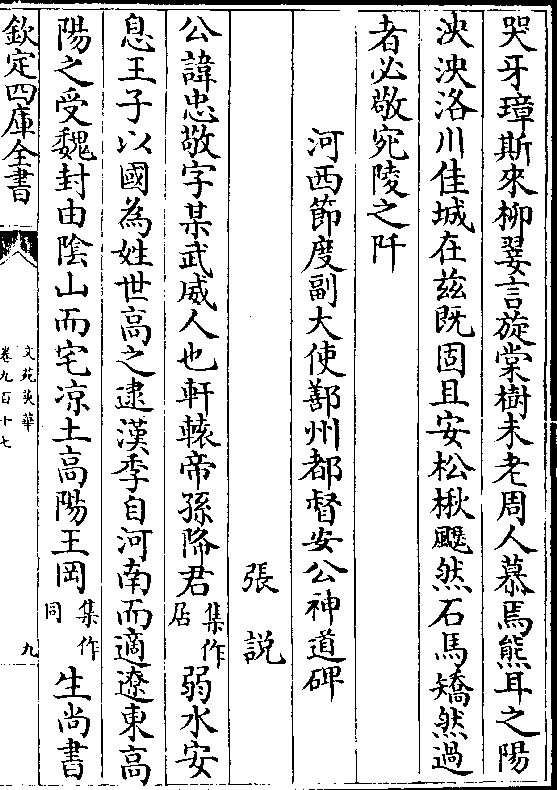 哭牙璋斯來柳翣言旋棠樹未老周人慕焉熊耳之陽
泱泱洛川佳城在兹既固且安松楸飃然石馬矯然過
者必敬宛陵之阡
河西節度副大使鄯州都督安公神道碑
張説
公諱忠敬字某武威人也軒轅帝孫降君集作居弱水安
息王子以國為姓世高之逮漢季自河南而適遼東高
陽之受魏封由陰山而宅凉土高陽王岡集作同生尚書
欽定四庫全書
文苑英華
卷九百十七
九